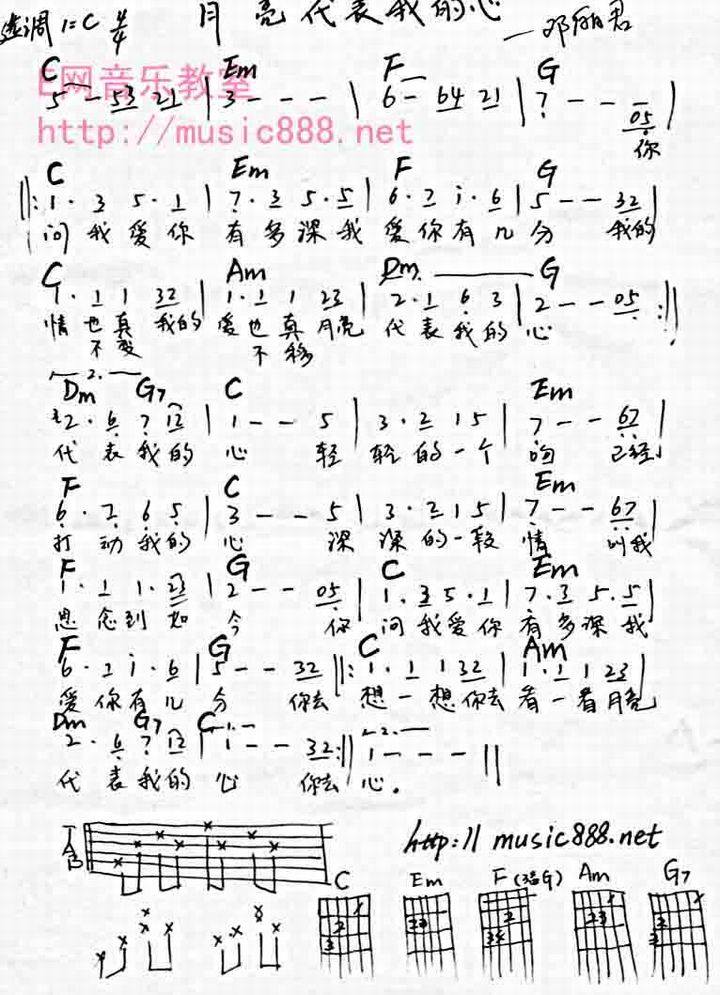 选调 1=C 4/4 月亮代表我的心 — 邓丽君
E网音乐教室
C Em F G
5 - 53 21 | 3 - - - | 6 - 64 21 | 7 - - - 05 |
http://music888.net
你
C Em F G
‖: 1· 3 5· 1 | 7· 3 5· 5 | 6· 7 i· 6 | 5 - - 32 |
问我爱你 有多深我 爱你有几分 我的
C Am Dm G
1· 1 1 32 | 1· 1 1 23 | 2· 1 6 3 | 2 - - 05 :‖
情也真 我的 爱也真 月亮 代表我的心
不变 不移
2.
Dm G7 C Em
2· 6 7 12 | 1 - - 5 | 3· 2 1 5 | 7 - - 67 |
代表我的 心 轻 轻的一个 吻 已经
F C Em
6· 7 6 5 | 3 - - 5 | 3· 2 1 5 | 7 - - 67 |
打动我的 心 深 深的一段 情 叫我
F G C Em
1· 1 1· 23 | 2 - - 05 | 1· 3 5· 1 | 7· 3 5· 5 |
思念到如 今 你 问我爱你 有多深我
F G C Am
6· 7 i· 6 | 5 - - 32 ‖: 1· 1 1 32 | 1· 1 1 23 |
爱你有几 分 你去 想一想你去 看一看月亮
Dm G7 C 1. 2.
2· 6 7 12 | 1 - - 32 :‖ 1 - - - ‖
代表我的 心 你去 心。
TAB
http://music888.net
C Em F Am G7
2 3 23 2 34 23 2 3